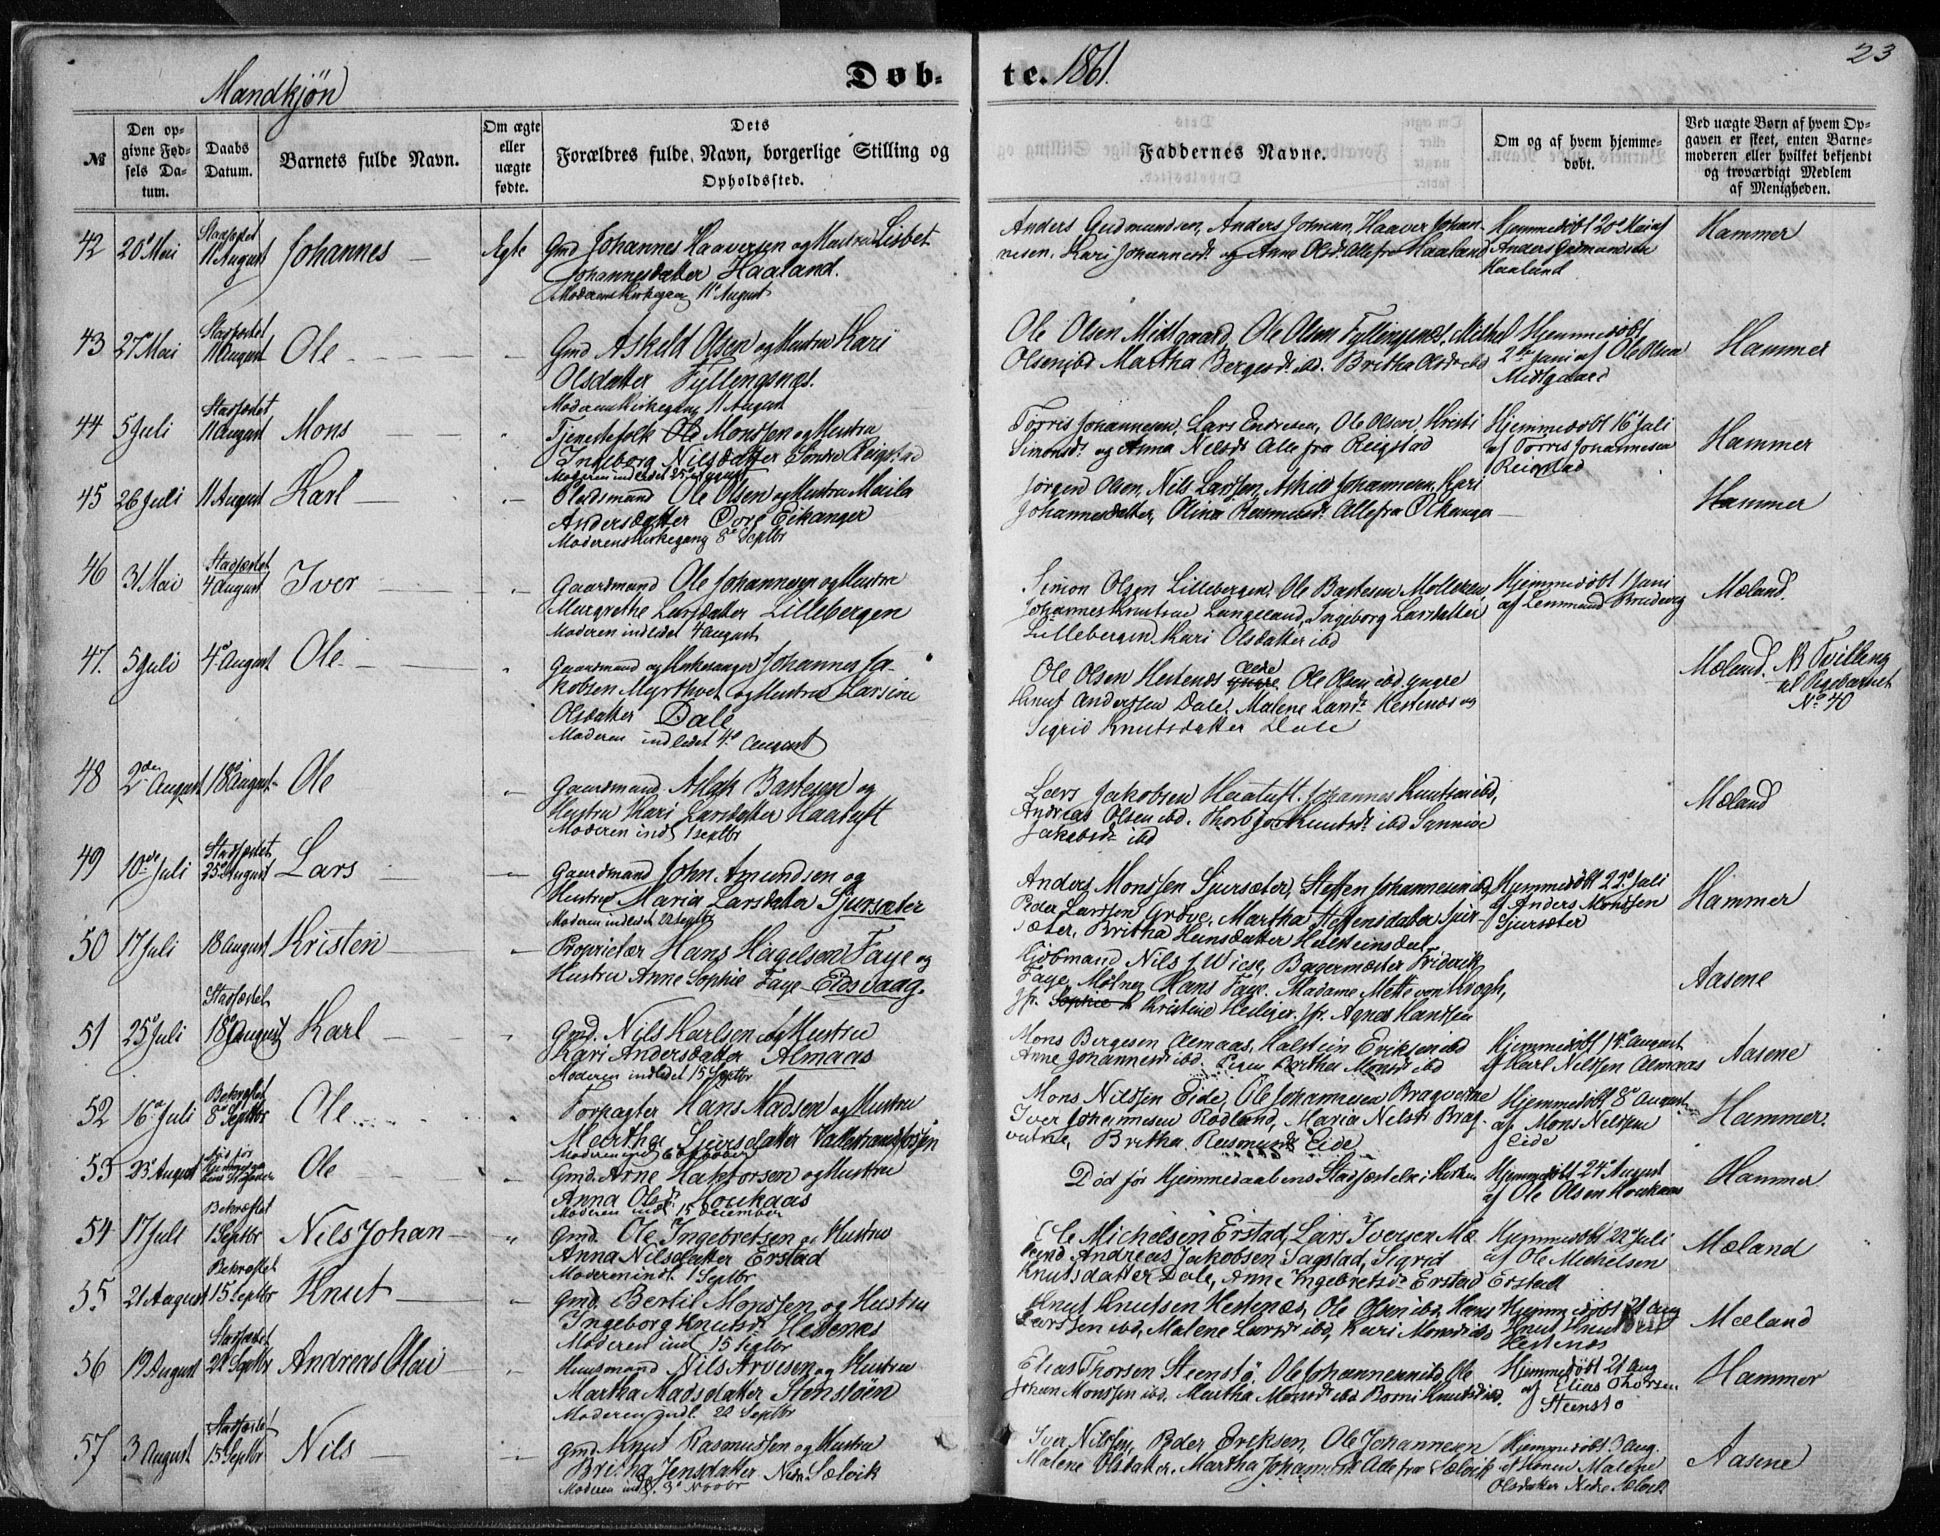 23
Mandkjøn
Døbte. 1861.
№
Den opgivne Fødsels Datum.
Daabs Datum.
Barnets fulde Navn.
Om ægte eller uægte fødte.
Dets
Forældres fulde Navn, borgerlige Stilling og
Opholdssted.
Faddernes Navne.
Om og af hvem hjemmedøbt.
Ved uægte Børn af hvem Opgaven er skeet, enten Barnemoderen eller hvilket bekjendt og troværdigt Medlem af Menigheden.
42 20 Mai Stadfæstet 11 August Johannes Ægte
Gmd Johannes Haaversen og Hustru Lisbet
Johannesdatter Haaland.
Moderens Kirkegang 11 August
Anders Gudmundsen, Anders Johnsen, Haaver Johan-
nesen, Kari Johannesdr og Anne Olsdr Alle fra Haaland
Hjemmedøbt 20 Mai af
Anders Gudmundsen
Haaland
Hammer
43 27 Mai Stadfæstet 11 August Ole
Gmd Askeld Olsen og Hustru Kari
Olsdatter Fyllingsnes.
Moderens Kirkegang 11 August
Ole Olsen Midtgaard, Ole Olsen Fyllingsnes, Mikkel
Olsen ibd Martha Bergesdr ibd. Britha Olsdr ibd
Hjemmedøbt
2 Juni af Ole Olsen
Midtgaard
Hammer
44 5 Juli Stadfæstet 11 August Mons
Tjenestefolk Ole Monssen og Hustru
Ingeborg Nilsdatter Reigstad
Moderen indledet 25 August
Torris Johannesen, Lars Endresen, Ole Olsen, Kristi
Simonsdr og Anna Nilsdr Alle fra Reigstad
Hjemmedøbt 16 Juli
af Torris Johannesen
Reigstad
Hammer
45 26 Juli 11 August Karl
Ole Olsen og Hustru
Andersdatter Eikanger
Moderens Kirkegang 8 Septbr
Jørgen Olsen, Nils Larssen, Askild Johannesen, Kari
Johannesdatter, Olina Rasmusdr Alle fra Eikanger
Hammer
46 31 Mai Stadfæstet 4 August Iver
Gaardmand Ole Johannesen og Hustru
Margrethe Larsdatter Lillebergen
Moderen indledet 4 August
Simon Olsen Lillebergen, Ole Bastesen
Johannes Knutsen Langeland, Ingeborg Larsdatter
Lillebergen, Kari Olsdatter ibd
Hjemmedøbt 1 Juni
af
Mæland.
47. 5 Juli 4 August Ole
Gaardmand og Kirkesanger Johannes Ja-
kobsen Myrthvet og Hustru Larsine
Olsdatter Dale
Moderen indledet 4 August
Ole Olsen Hestenes ældre Ole Olsen ibd yngre
Knut Anderssen Dale, Malene Larsdr Hestenes og
Sigrid Knutsdatter Dale
Mæland. NB Tvilling
til Pigebarnet
No 40
48 2den August 18 August Ole
Gaardmand Aslak Bastesen og
Hustru Kari Larsdatter Haatuft
Moderen indl 1 Septbr
Lars Jakobsen Haatuft. Johannes Knutsen ibd,
Andreas Olsen ibd. Thorbjør Knutsdr ibd Synnive
Jakobsdr ibd
Mæland
49 10de Juli Stadfæstet 25 August Lars
Gaardmand John Amundsen og
Hustru Maria Larsdatter Sjursæter
Moderen indledet Septbr
Anders Monssen Sjursæter, Steffen Johannesen ibd
Peder Larssen Grøve, Martha Steffensdatter Sjur-
sæter, Britha Hansdatter
Hjemmedøbt 22 Juli
af Anders Monssen
Sjursæter
Hammer
50 17 Juli 18 August Kristen
Proprietær Hans Hagelsen Faye og
Hustru Anne Sophie Faye Eidsvaag.
Kjøbmand Nils Wiese, Bagermester Friderik
Faye, Møkner Hans Faye. Madame Mette von Krogh,
Jfr. Kristine Heiliger. Jfr. Agnes Hansen
Aasene
51 25 Juli Stadfæstet 18 August Karl
Gmd. Nils Karlsen og Hustru
Kari Andersdatter Almaas
Moderen indledet 15 Septbr
Mons Bergesen Almaas, Halstein Eriksen ibd
Anne Johannesdr ibd. Pigen Marthe Monsdr ibd
Hjemmedøbt 14 August
af Karl Nilssen Almaas
Aasene
52 16 Juli Bekræftet 8 Septbr Ole
Forpagter Hans Madsen og Hustru
Martha Sjursdatter Vallestrandfossen
Moderen indl 6 October
Mons Nilssen Eide, Ole Johannesen Bragverne
Iver Johannesen Rødland, Maria Nilsdr Brag-
verne, Britha Rasmusdr Eide
Hjemmedøbt 8 August
af Mons Nilssen
Eide
Hammer.
53 23 August Ole
Gmd. Arne Haktorsen og Hustru
Anna Olsdr Houkaas
Moderen indl. 15 December
Død før Hjemmedaabens Stadfæstelse i Kirken
Hjemmedøbt 24 August
af Ole Olsen Houkaas
Hammer
54 17 Juli Bekræftet 1 Septbr Nils Johan
Gmd. Ole Ingebretsen og Hustru
Anna Nilsdatter Erstad
Moderen indl. 1 Septbr
Ole Michelsen Erstad, Lars Iversen Mæ-
land Andreas Jakobsen Sagstad, Sigrid
Knutsdatter Dale, Anne Ingebretsdr Erstad
Hjemmedøbt 22 Juli
af Ole Michelsen
Erstad
Mæland
55 21 August Bekræftet 15 Septbr Knut
Gmd. Bertil Monssen og Hustru
Ingeborg Knutsdr Hestenæs
Moderen indl 15 Septbr
Knut Knutsen Hestenæs, Ole Olsen ibd, Hans
Larssen ibd, Malene Larsdr ibd, Kari Monsdr ibd
Hjemmedøbt 21 Aug
Knut
Hestenæs
Mæland
56 19 August Stadfæstet 22 Septbr Andreas Olai
Huusmand Nils Arvesen og Hustru
Martha Madsdatter
Moderen indl. 22 Septbr
Elias Thorsen Steenstø, Ole Johannesen ibd, Ole
Johan Monssen ibd, Martha Monsdr ibd Knutsdr ibd.
Hjemmedøbt 21 Aug
af Elias Thorsen
Steenstø
Hammer
57 3 August Stadfæstet 15 Septbr Nils
Gmd. Knut Rasmussen og Hustru
Britha Jensdatter Nedre Sælvik
Moderen indl. 3 Novbr
Iver Nilssen, Peder Eriksen, Ole Johannesen
Malene Olsdatter, Martha Johannesdr Alle fra Sælvik
Hjemmedøbt 3 Aug.
af Konen Malene
Olsdatter Nedre Sælvik
Aasene